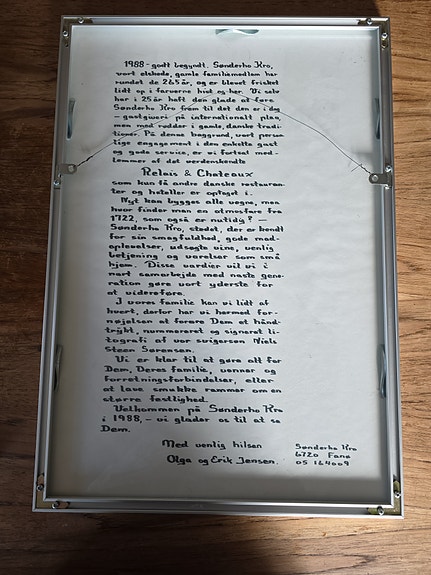 1988 - godt begyndt. Sønderho Kro,
vort elskede, gamle familiemedlem har
rundet de 265 år, og er blevet frisket
lidt op i farverne hist og her. Vi selv
har i 25 år haft den glade at føre
Sønderho Kro frem til det den er i dag
- gastgiveri på internationalt plan,
men med rødder i gamle, danske tradi-
tioner. På denne baggrund, vort person-
lige engagement i den enkelte gast
og gode service, er vi fortsat med-
lemmer af det verdenskendte
Relais & Chateaux
som kun få andre danske restauran-
ter og hoteller er optaget i.
Nyt kan bygges alle vegne, men
hvor finder man en atmosfare fra
1722, som også er nutidig? -
Sønderho Kro, stedet, der er kendt
for sin smagfuldhed, gode mad-
oplevelser, udsøgte vine, venlig
betjening og varelser som små
hjem. Disse vardier vil vi i
nart samarbejde med naste gene-
ration gøre vort yderste for
at videreføre.
I vores familie kan vi lidt af
hvert, derfor har vi hermed for-
nøjelsen at forare Dem et hånd-
trykt, nummereret og signeret li-
tografi af vor svigersøn Niels
Steen Sørensen.
Vi er klar til at gøre alt for
Dem, Deres familie, venner og
forretningsforbindelser, eller
at lave smukke rammer om en
større festlighed.
Velkommen på Sønderho Kro
i 1988, - vi glader os til at se
Dem.
Med venlig hilsen
Olga og Erik Jensen.
Sønderho Kro
6720 Fanø
05 164009